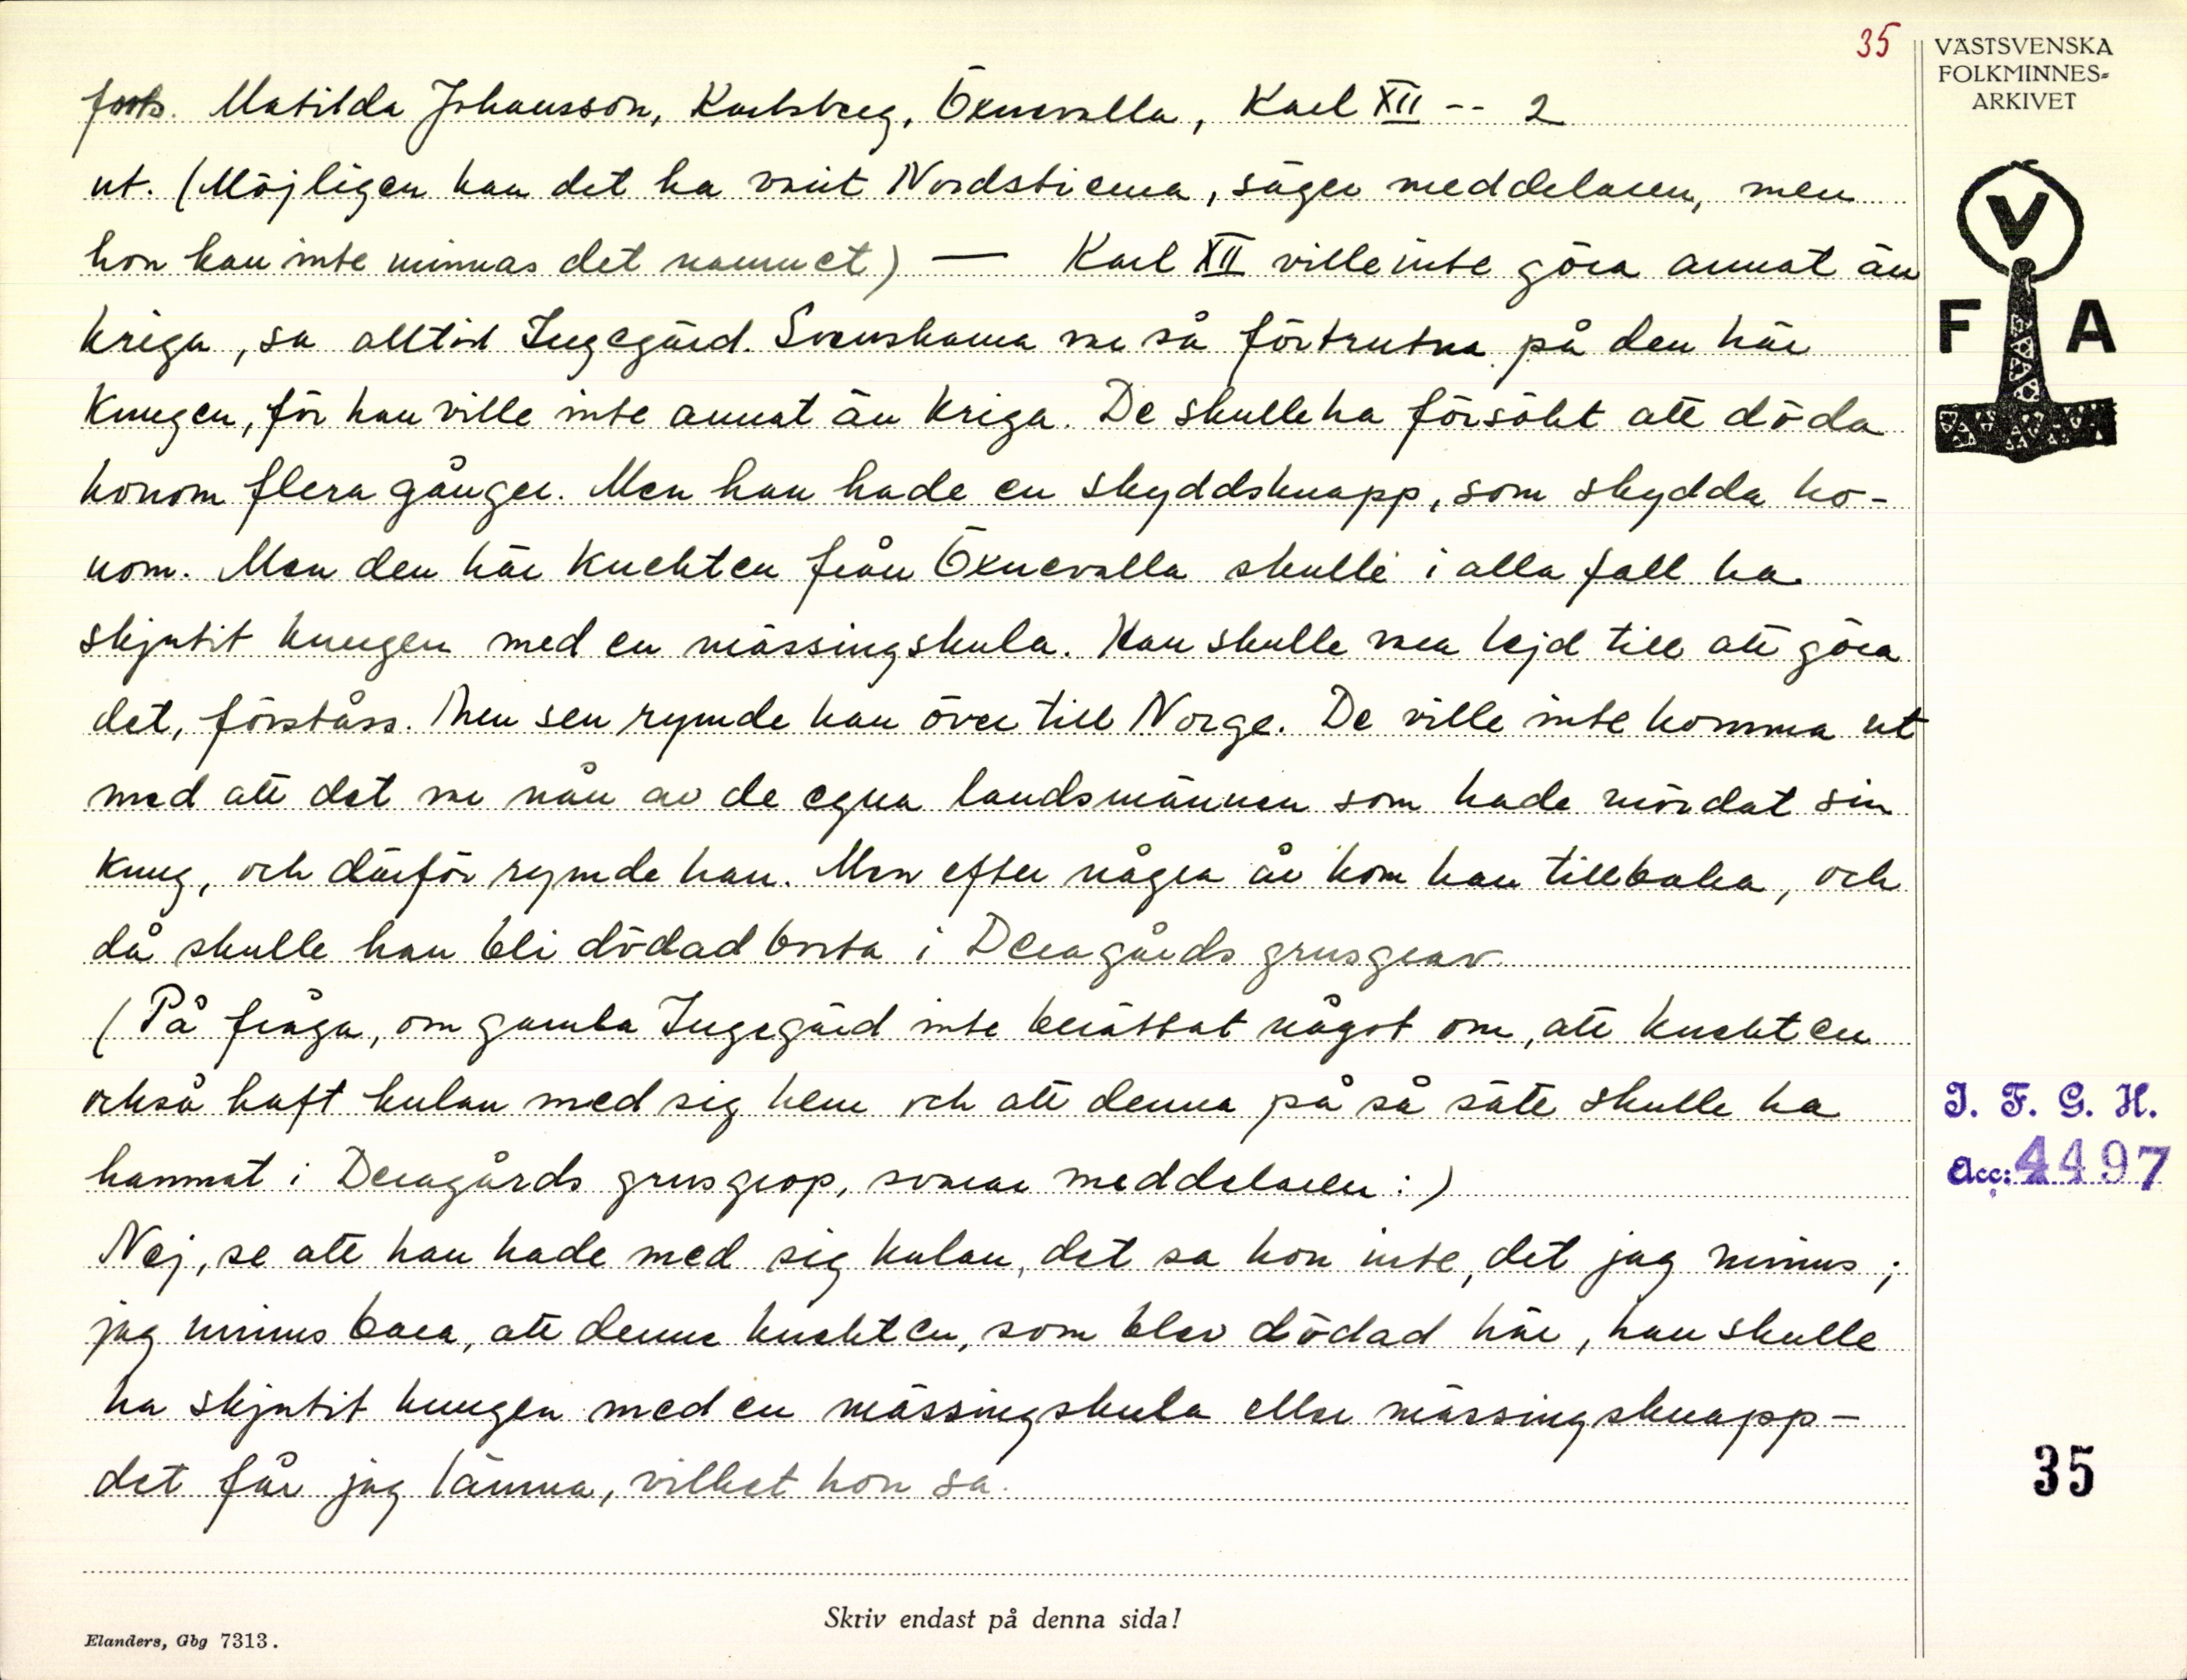 35
VÄSTSVENSKA
FOLKMINNES-
ARKIVET
forts. Matilda Johansson, Karlsberg, Öxnevalla, Karl XII -- 2
ut. (Möjligen kan det ha varit Nordstierna, säger meddelaren, men
hon kan inte minnas det namnet) — Karl XII ville inte göra annat än
kriga, sa alltid Ingegärd. Svenskarna va så förtrutna på den här
kungen, för han ville inte annat än kriga. De skulle ha försökt att döda
honom flera gånger. Men han hade en skyddsknapp, som skydda ho-
nom. Men den här knekten från Öxnevalla skulle i alla fall ha
skjutit kungen med en mässingskula. Han skulle vara lejd till att göra
det, förståss. Men sen rymde han över till Norge. De ville inte komma ut
med att det va nån av de egna landsmännen som hade mördat sin
kung, och därför rymde han. Men efter några år kom han tillbaka, och
då skulle han bli dödad borta i Deragårds grusgrav
(På fråga, om gamla Ingegärd inte berättat något om, att knekten
också haft kulan med sig hem och att denna på så sätt skulle ha
hamnat i Deragårds grusgrop, svarar meddelaren:)
Nej, se att han hade med sig kulan, det sa hon inte, det jag minns;
jag minns bara, att denne knekten, som blev dödad här, han skulle
ha skjutit kungen med en mässingskula eller mässingsknapp -
det får jag lämna, vilket hon sa.
V
F A
I. F. G. H.
Acc: 4497
35
Skriv endast på denna sida!
Elanders, Gbg 7313.